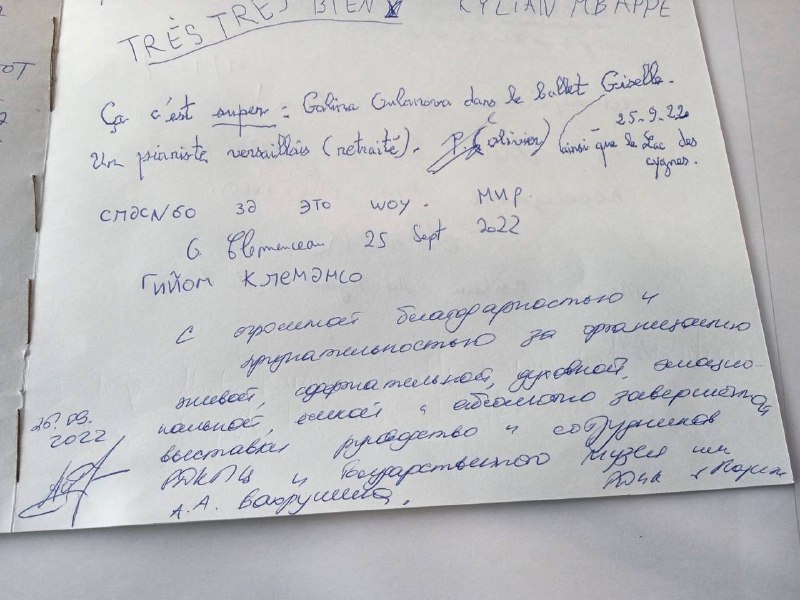 TRÈS TRES BIEN KYLIAN MBAPPE
OT
Ça c'est super : Galina Oulanova dans le ballet Giselle.
25-9-22
Un pianiste versaillais (retraité). P. (olivier) ainsi que le Lac des
cygnes.
СПАСNБО ЗА ЭТО ШОУ. МИР.
G Clemenceau 25 Sept 2022
ГИЙОМ КЛЕМАНСО
С огромной благодарностью и
признательностью за организацию
живой, содержательной, духовной, эмацио-
нальной, емкой и абсолютно завершённой
26.09.
2022
выставки руководство и сотрудников
РДКПЦ и Государственного музея им
А.А. Бахрушина.